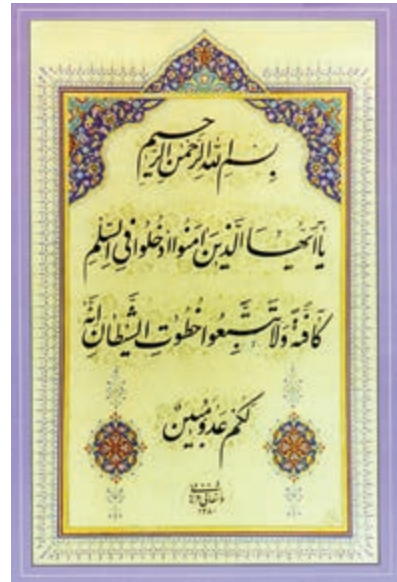 بسم الله الرحمن الرحیم
یا ایها الذین امنوا ادخلوا فی السلم
کافة ولا تتبعوا خطوت الشیطان انه
لکم عدو مبین
۱۳۸۰